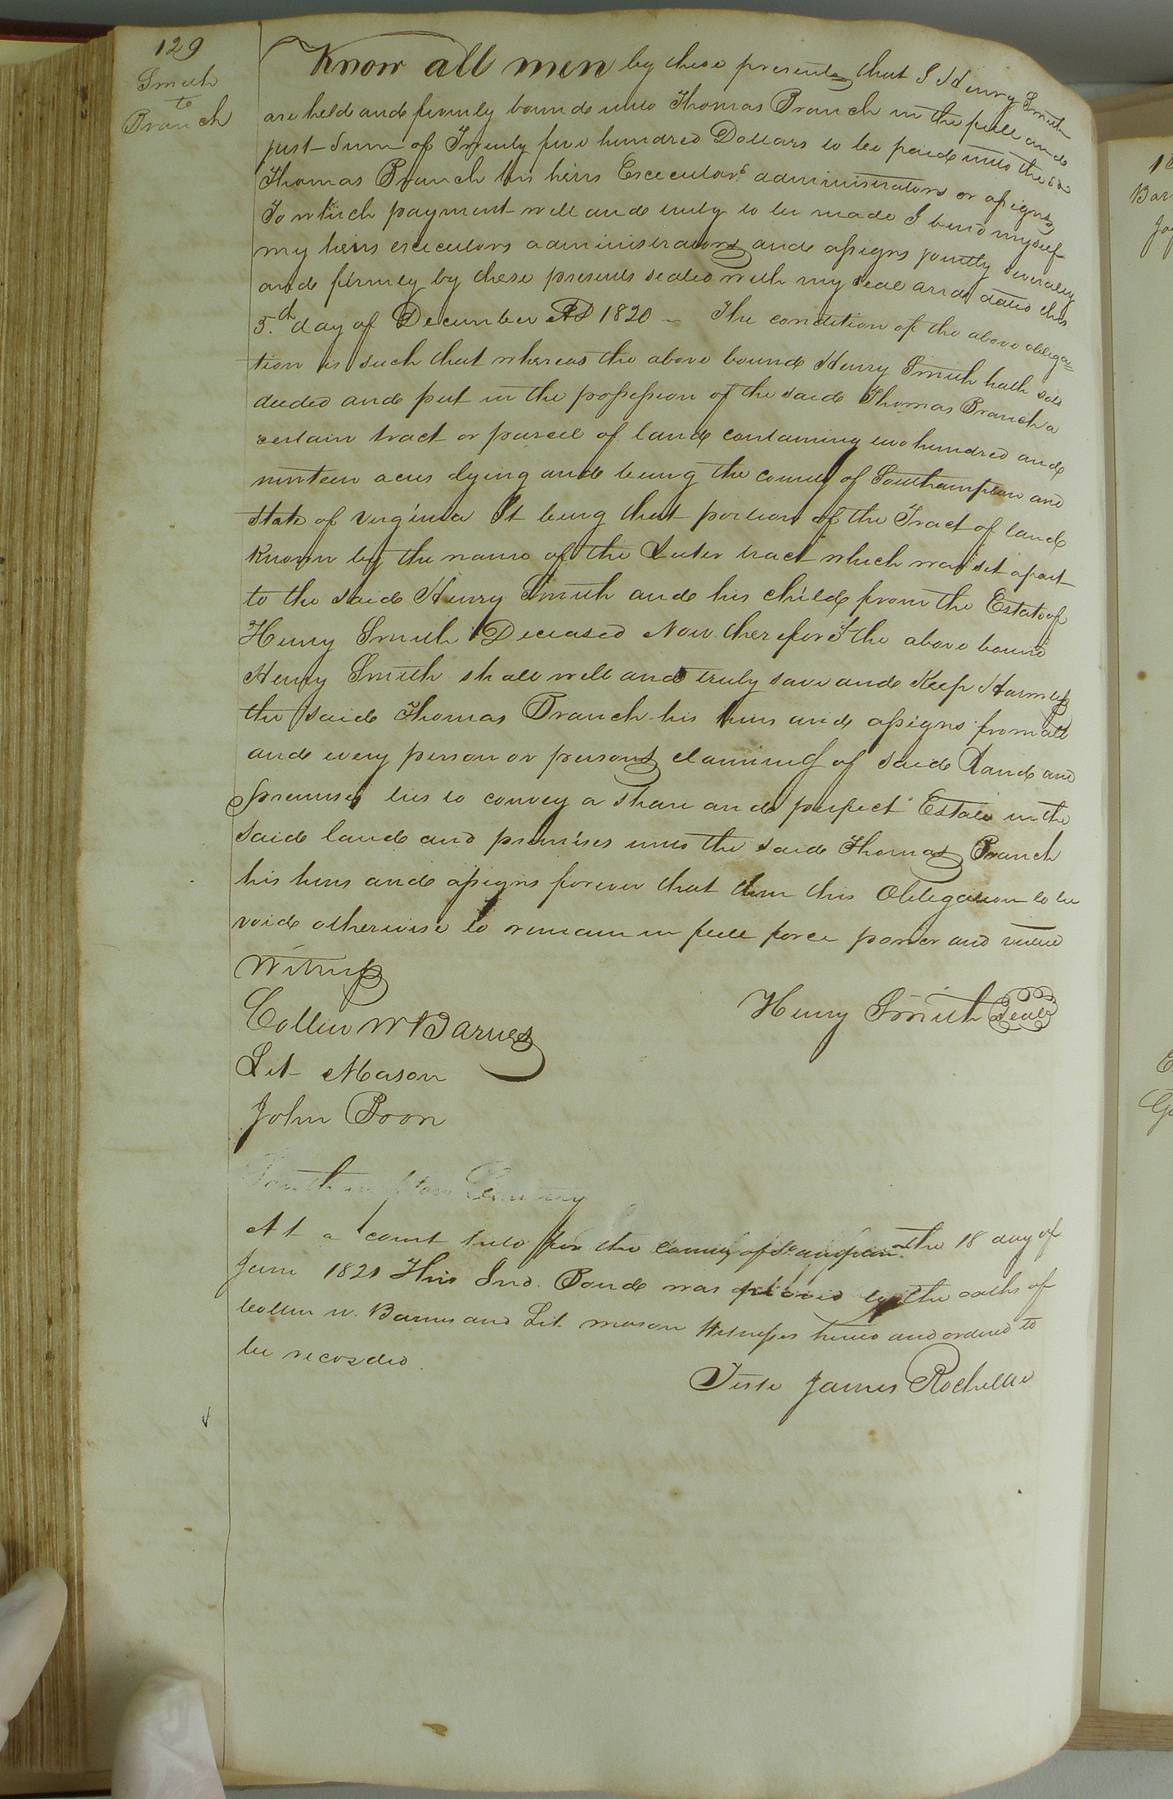 129
Smith
to
Branch
Know all men by these presents that I Henry Smith
are held and firmly bound unto Thomas Branch in the full and
just Sum of Twenty five hundred Dollars to be paid unto the sd
Thomas Branch his heirs Executors administrators or assigns
To which payment well and truly to be made I bind myself
my heirs executors administrators and assigns jointly severally
and firmly by these presents sealed with my seal and dated this
5.th day of December AD 1820 - The condition of the above obliga=
tion is such that whereas the above bound Henry Smith hath sold
deeded and put in the possession of the said Thomas Branch a
certain tract or parcel of land containing two hundred and
ninteen acres lying and being the county of Southampton and
State of Virginia It being that portion of the Tract of land
Known by the name of the tract which was set apart
to the said Henry Smith and his child from the Estate of
Henry Smith Deceased Now therefore if the above bound
Henry Smith shall well and truly save and Keep Harmless
the said Thomas Branch his heirs and assigns from all
and every person or persons claiming of said Land and
premises to convey a and perfect Estate in the
said land and premises unto the said Thomas Branch
his heirs and assigns forever that then this Obligation to be
void otherwise to remain in full force power and virtue
Witness
Collin W Barnes
Henry Smith Seal
Lit Mason
John Boon
Southampton County
At a court held for the county of the 18 day of
June 1821 This Ind. Bond was proved by the oaths of
Collin W. Barnes and Lit. mason Witnesses hereto and ordered to
be recorded.
Teste James Rochelle